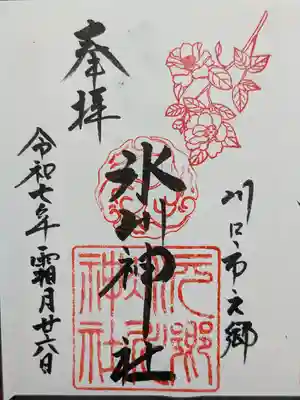 奉拝
川口市元郷
氷川神社
元郷氷川神社
令和七年霜月廿六日